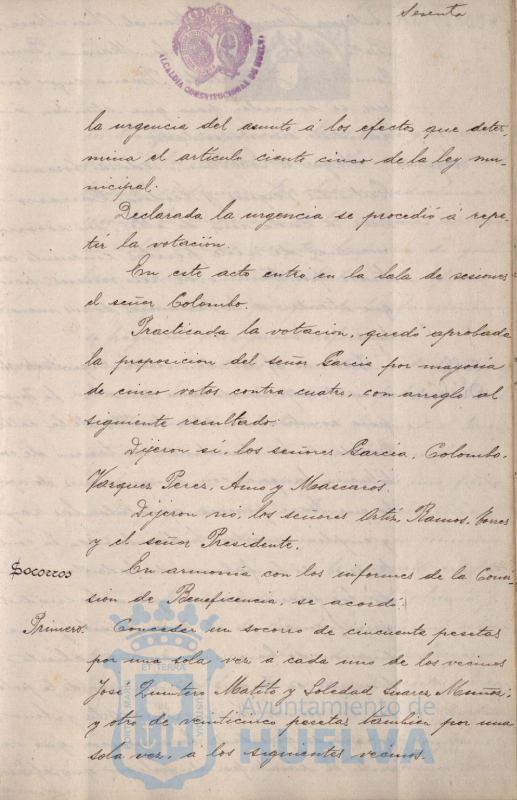 Sesenta
ALCALDIA CONSTITUCIONAL DE HUELVA
la urgencia del asunto á los efectos que deter-
mina el artículo ciento cinco de la ley mu-
nicipal.
Declarada la urgencia se procedió á repe-
tir la votación.
En este acto entró en la Sala de sesiones
el señor Colombo.
Practicada la votacion, quedó aprobada
la proposicion del señor Garcia por mayoría
de cinco votos contra cuatro, con arreglo al
siguiente resultado:
Dijeron sí, los señores Garcia, Colombo,
Vazquez Perez, Amo y Mascarós.
Dijeron nó, los señores Ortíz, Ramos,
y el señor Presidente.
Socorros
En armonía con los informes de la Comi-
sion de Beneficencia, se acordó:
Primero.
Conceder un socorro de cincuenta pesetas
por una sola vez á cada uno de los vecinos
José Quintero Matito y Soledad Suarez Muñoz;
y otro de veinticinco pesetas tambien por una
sola vez, á los siguientes vecinos.
PORTUS MARIS ET TERRÆ CUSTODIA
Ayuntamiento de
HUELVA